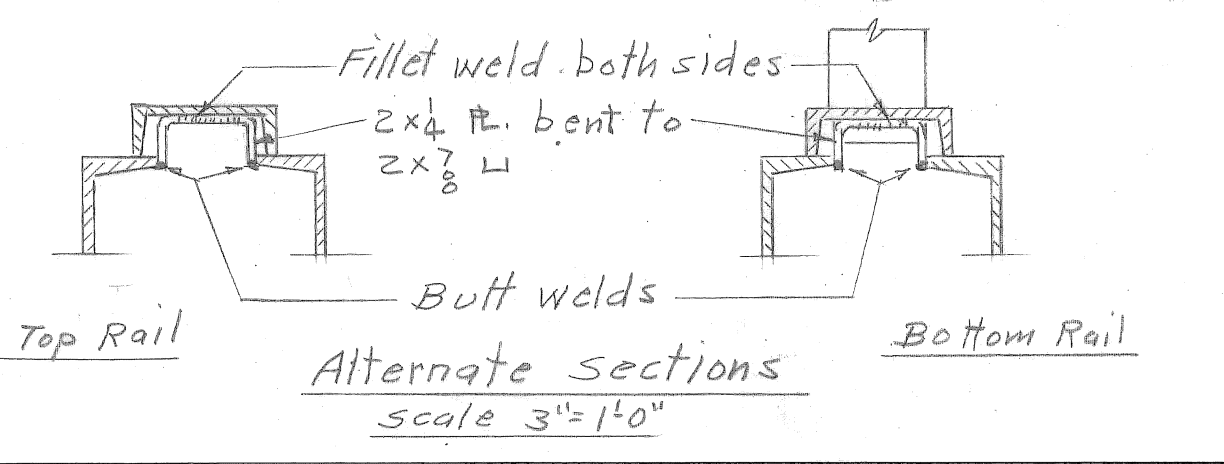 Fillet weld both sides
2 x 1/4 PL. bent to
2 x 7/8 ⊔
Butt welds
Top Rail
Bottom Rail
Alternate Sections
Scale 3"=1'-0"